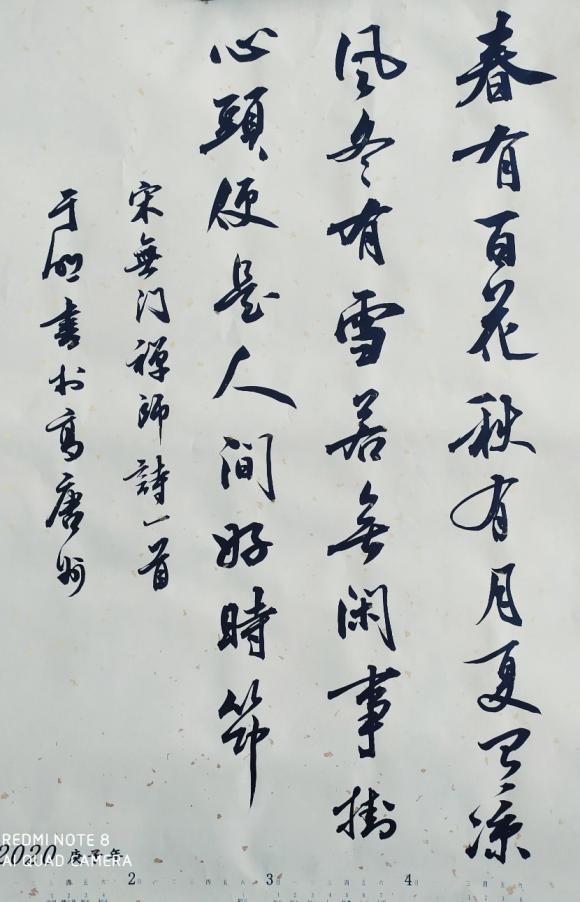 春有百花秋有月夏有凉
风冬有雪若無闲事掛
心頭便是人间好時節
宋無门禅师詩一首
于明書於高唐州
REDMI NOTE 8
AI QUAD CAMERA
2020 庚子年
2 3 4